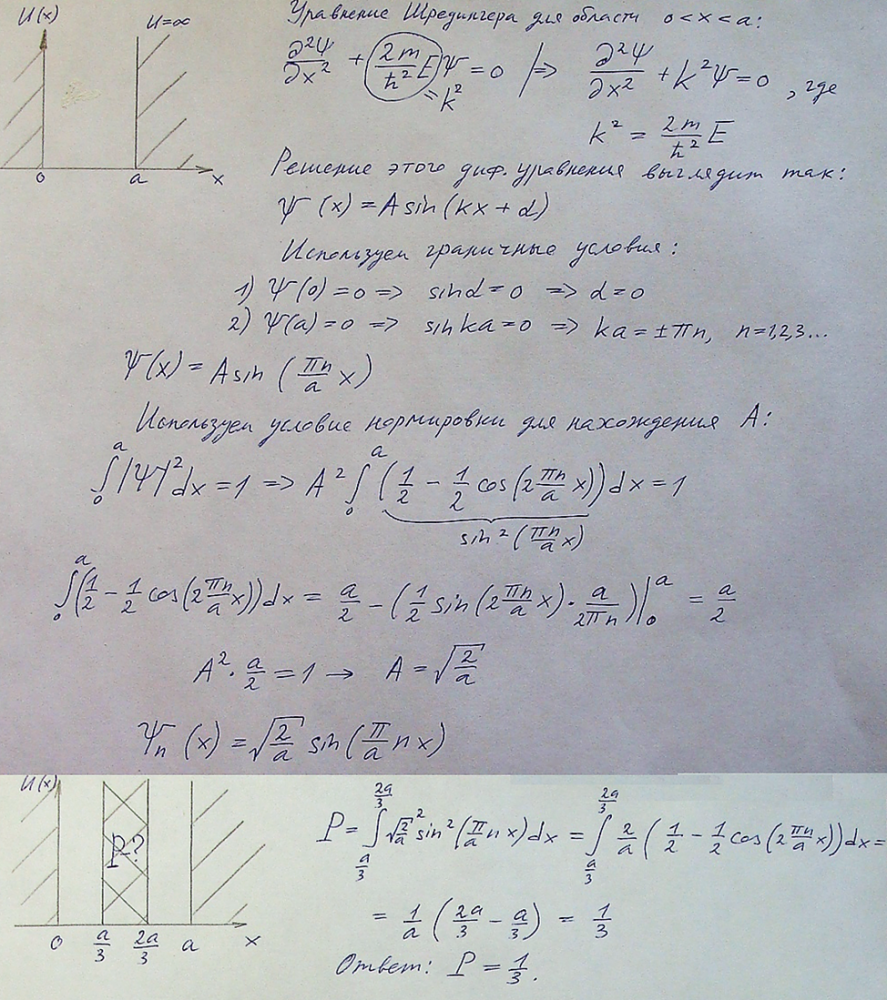 U(x)
U=∞
0
a
x
Уравнение Шредингера для области 0<x<a:
∂²Ψ/∂x² + (2m/ħ² E)Ψ = 0 |⇒ ∂²Ψ/∂x² + k²Ψ = 0, где
= k²
k² = 2m/ħ² E
Решение этого диф. уравнения выглядит так:
Ψ(x) = A sin(kx + α)
Используем граничные условия:
1) Ψ(0) = 0 => sin α = 0 => α = 0
2) Ψ(a) = 0 => sin ka = 0 => ka = ±πn, n=1,2,3...
Ψ(x) = A sin(πn/a x)
Используем условие нормировки для нахождения A:
∫₀ᵃ |Ψ|² dx = 1 => A² ∫₀ᵃ (1/2 - 1/2 cos(2 πn/a x)) dx = 1
sin²(πn/a x)
∫₀ᵃ (1/2 - 1/2 cos(2 πn/a x)) dx = a/2 - (1/2 sin(2 πn/a x) · a/2πn)|₀ᵃ = a/2
A² · a/2 = 1 → A = √(2/a)
Ψₙ(x) = √(2/a) sin(π/a nx)
U(x)
P-?
0
a/3
2a/3
a
x
P = ∫_{a/3}^{2a/3} √(2/a)² sin²(π/a nx) dx = ∫_{a/3}^{2a/3} 2/a (1/2 - 1/2 cos(2 πn/a x)) dx =
= 1/a (2a/3 - a/3) = 1/3
Ответ: P = 1/3.